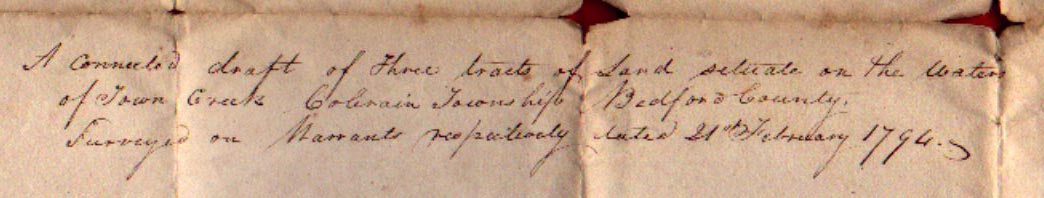 A connected draft of three tracts of Land setuate on the Waters
of Town Creek Colerain Township Bedford County.
Surveyed on Warrants respectively dated 21st February 1794.